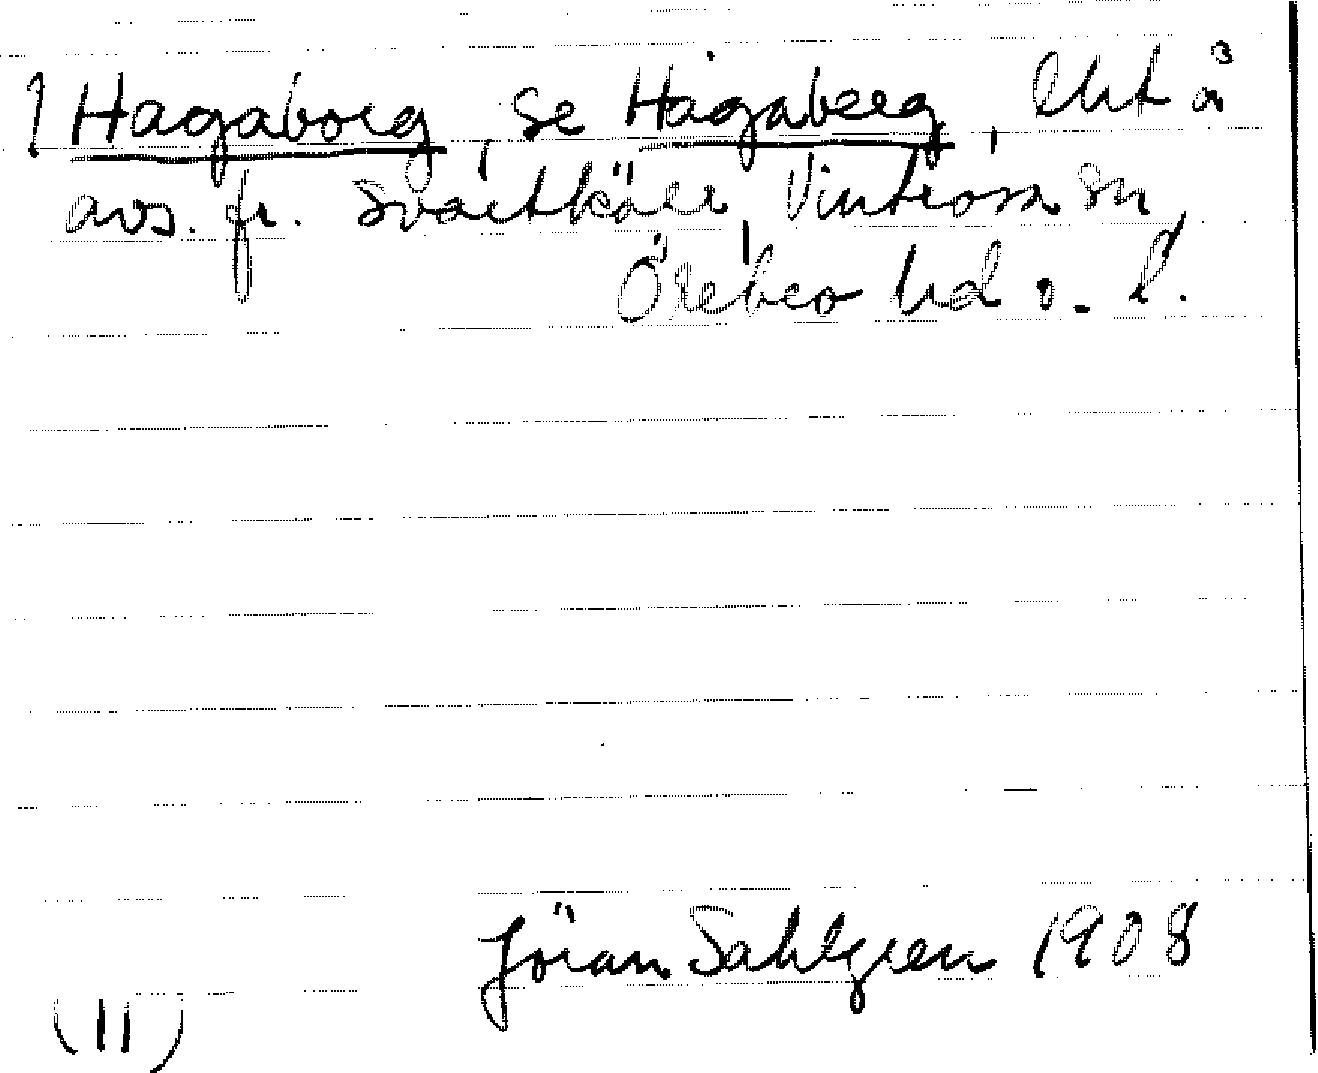 Hagaborg, se Hagaberg, lht å
avs. fr. Svartkärr, Vintrosa sn,
Örebro hd o. l.
Jöran Sahlgren 1908
(11)